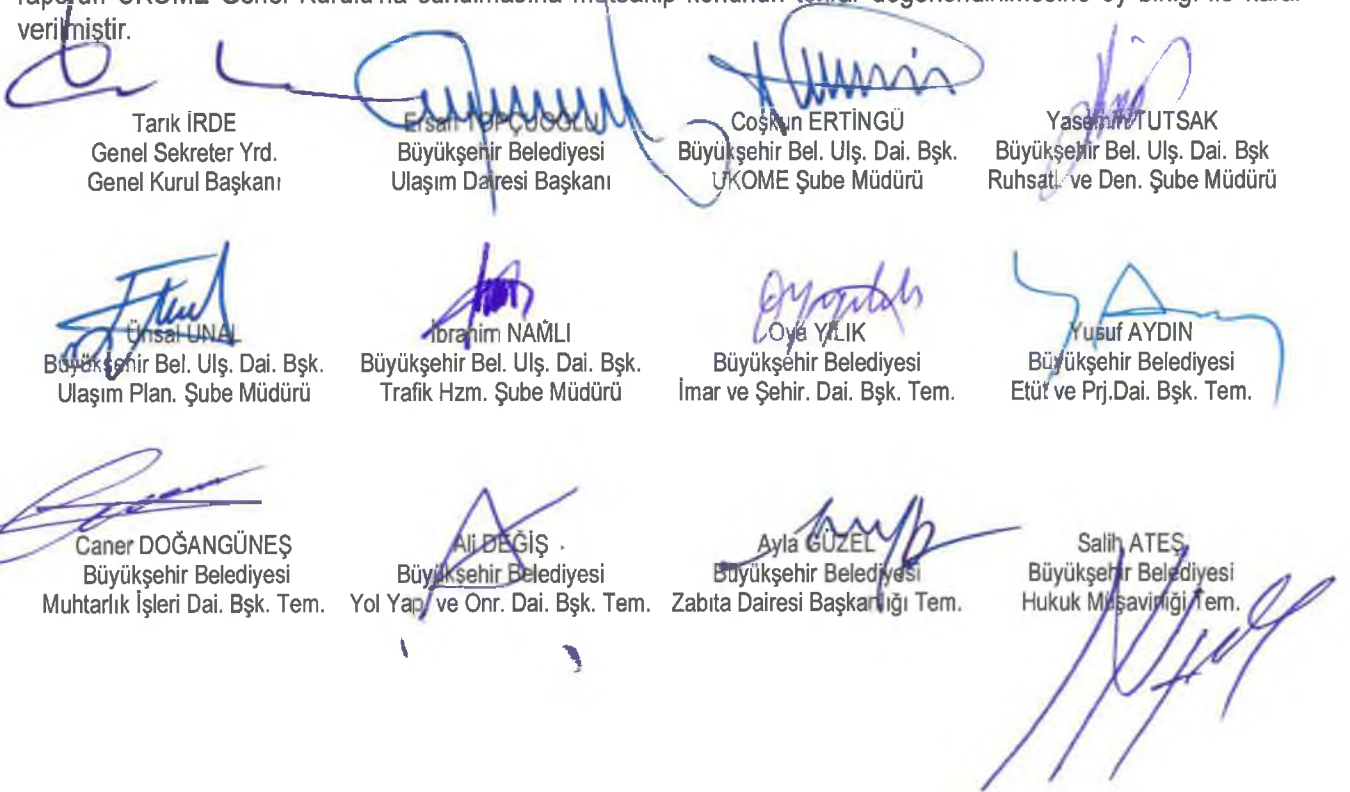 raporun UKOME Genel Kurulu'na sunulmasına müteakip konunun tekrar değerlendirilmesine oy birliği ile karar
verilmiştir.
Tarık İRDE
Genel Sekreter Yrd.
Genel Kurul Başkanı
Ersan TOPÇUOĞLU
Büyükşehir Belediyesi
Ulaşım Dairesi Başkanı
Coşkun ERTİNGÜ
Büyükşehir Bel. Ulş. Dai. Bşk.
UKOME Şube Müdürü
Yasemin TUTSAK
Büyükşehir Bel. Ulş. Dai. Bşk
Ruhsatl. ve Den. Şube Müdürü
Ünsal ÜNAL
Büyükşehir Bel. Ulş. Dai. Bşk.
Ulaşım Plan. Şube Müdürü
İbrahim NAMLI
Büyükşehir Bel. Ulş. Dai. Bşk.
Trafik Hzm. Şube Müdürü
Oya YILIK
Büyükşehir Belediyesi
İmar ve Şehir. Dai. Bşk. Tem.
Yusuf AYDIN
Büyükşehir Belediyesi
Etüt ve Prj.Dai. Bşk. Tem.
Caner DOĞANGÜNEŞ
Büyükşehir Belediyesi
Muhtarlık İşleri Dai. Bşk. Tem.
Ali DEĞİŞ
Büyükşehir Belediyesi
Yol Yap. ve Onr. Dai. Bşk. Tem.
Ayla GÜZEL
Büyükşehir Belediyesi
Zabıta Dairesi Başkanlığı Tem.
Salih ATEŞ
Büyükşehir Belediyesi
Hukuk Müşavirliği Tem.